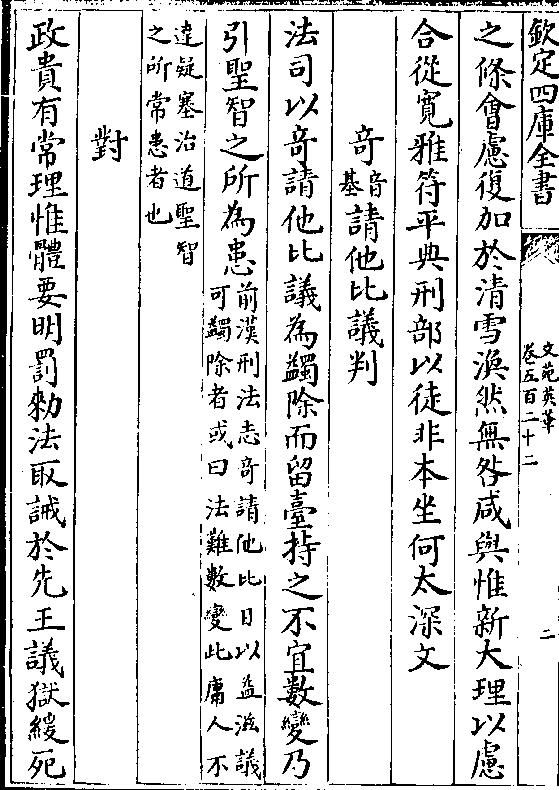 欽定四庫全書
文苑英華
卷五百二十二
二
之條會慮復加於清雪渙然無咎咸與惟新大理以慮
合從寬雅符平典刑部以徒非本坐何太深文
奇音基請他比議判
法司以奇請他比議為蠲除而留臺持之不宜數變乃
引聖智之所為患前漢刑法志奇請他比日以益滋議
可蠲除者或曰法難數變此庸人不
違疑塞治道聖智
之所常患者也
對
政貴有常理惟體要明罰勅法取誡於先王議獄緩死